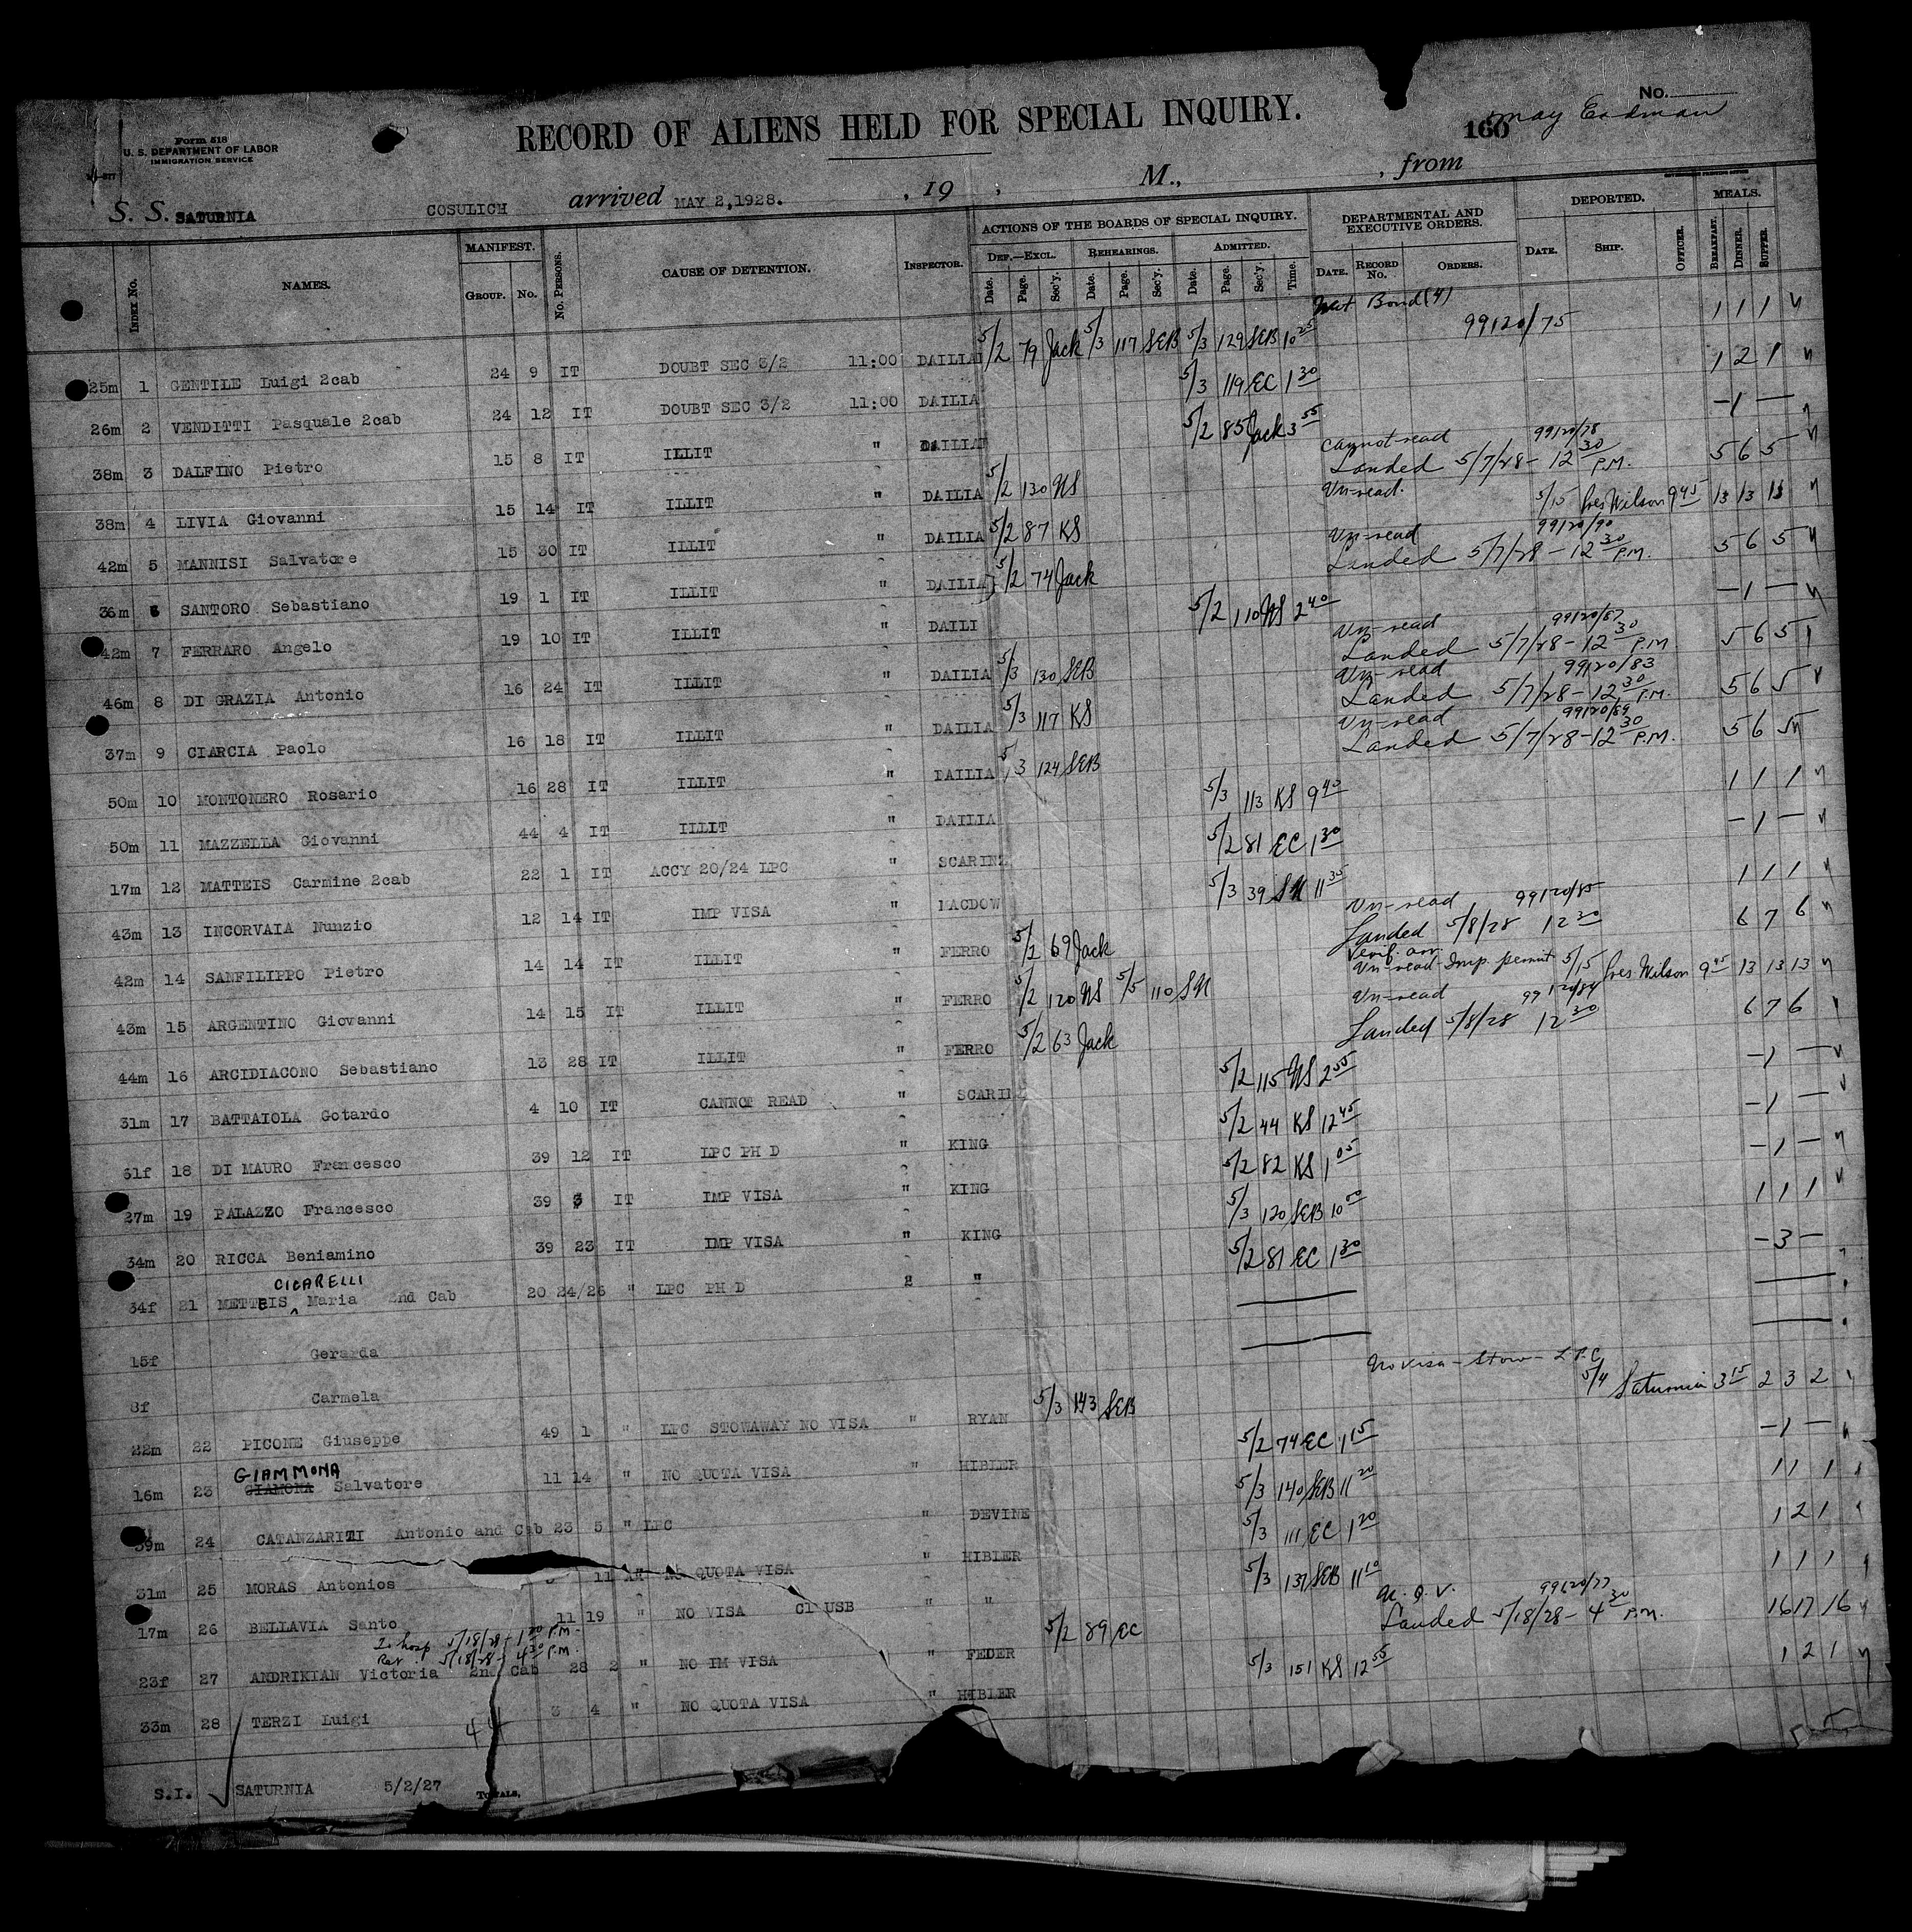 No.
160 May Eadman
Form 518
U. S. DEPARTMENT OF LABOR
IMMIGRATION SERVICE
RECORD OF ALIENS HELD FOR SPECIAL INQUIRY.
S. S. SATURNIA COSULICH arrived MAY 2,1928. , 19 ; M., , from
INDEX No. NAMES. MANIFEST. GROUP. No. No. PERSONS. CAUSE OF DETENTION. INSPECTOR. ACTIONS OF THE BOARDS OF SPECIAL INQUIRY. DEF.—EXCL. Date. Page. Sec'y. REHEARINGS. Date. Page. Sec'y. ADMITTED. Date. Page. Sec'y. Time. DEPARTMENTAL AND EXECUTIVE ORDERS. DATE. RECORD No. ORDERS. DEPORTED. DATE. SHIP. OFFICER. MEALS. BREAKFAST. DINNER. SUPPER.
Bond (4) 99120/75
25m 1 GENTILE Luigi 2cab 24 9 IT DOUBT SEC 3/2 11:00 DAILIA 5/2 79 Jack 5/3 117 SEB 5/3 129 SEB 10 25 1 1 1
26m 2 VENDITTI Pasquale 2cab 24 12 IT DOUBT SEC 3/2 11:00 DAILIA 5/3 119 EC 1 30 1 2 1
38m 3 DALFINO Pietro 15 8 IT ILLIT " DAILIA 5/2 85 Jack 3 55 - 1 -
Cannot read 99120/78
38m 4 LIVIA Giovanni 15 14 IT ILLIT " DAILIA 5/2 130 NS Landed 5/7/28 - 12 30 P.M. 5 6 5
42m 5 MANNISI Salvatore 15 30 IT ILLIT " DAILIA 5/2 87 KS Un-read. 5/15 Pres Wilson 9 45 13 13 13
Un-read 99120/90
36m 6 SANTORO Sebastiano 19 1 IT ILLIT " DAILIA 5/2 74 Jack Landed 5/7/28 - 12 30 P.M. 5 6 5
42m 7 FERRARO Angelo 19 10 IT ILLIT " DAILI 5/2 110 NS 2 40 - 1 -
Un-read 99120/87
46m 8 DI GRAZIA Antonio 16 24 IT ILLIT " DAILIA 5/3 130 SEB Landed 5/7/28 - 12 30 P.M 5 6 5
Un-read 99120/83
37m 9 CIARCIA Paolo 16 18 IT ILLIT " DAILIA 5/3 117 KS Landed 5/7/28 - 12 30 P.M. 5 6 5
Un-read 99120/89
50m 10 MONTONERO Rosario 16 28 IT ILLIT " DAILIA 5/3 124 SEB Landed 5/7/28 - 12 30 P.M. 5 6 5
50m 11 MAZZELLA Giovanni 44 4 IT ILLIT " DAILIA 5/3 113 KS 9 40 1 1 1
17m 12 MATTEIS Carmine 2cab 22 1 IT ACCY 20/24 LPC " SCARINZ 5/2 81 EC 1 30 - 1 -
43m 13 INCORVAIA Nunzio 12 14 IT IMP VISA " MACDOW 5/3 39 SN 11 35 1 1 1
Un-read 99120/85
42m 14 SANFILIPPO Pietro 14 14 IT ILLIT " FERRO 5/2 69 Jack Landed 5/8/28 12 30 6 7 6
Verif. arr.
43m 15 ARGENTINO Giovanni 14 15 IT ILLIT " FERRO 5/2 120 NS 5/5 110 SN Un-read Imp. permit 5/15 Pres. Wilson 9 45 13 13 13
Un-read 99120/84
44m 16 ARCIDIACONO Sebastiano 13 28 IT ILLIT " FERRO 5/2 63 Jack Landed 5/8/28 12 30 6 7 6
31m 17 BATTAIOLA Gotardo 4 10 IT CANNOT READ " SCARIN 5/2 115 NS 2 55 - 1 -
61f 18 DI MAURO Francesco 39 12 IT LPC PH D " KING 5/2 44 KS 12 45 - 1 -
27m 19 PALAZZO Francesco 39 3 IT IMP VISA " KING 5/2 82 KS 1 05 - 1 -
34m 20 RICCA Beniamino 39 23 IT IMP VISA " KING 5/3 120 SEB 10 00 1 1 1
CICARELLI
34f 21 METTEIS Maria 2nd Cab 20 24/26 " LPC PH D 2 " 5/2 81 EC 1 30 - 3 -
15f Gerarda
8f Carmela
No visa - Stow - L.P.C
22m 22 PICONE Giuseppe 49 1 " LPC STOWAWAY NO VISA " RYAN 5/3 143 SEB 5/4 Saturnia 3 15 2 3 2
GIAMMONA
16m 23 GIAMONA Salvatore 11 14 " NO QUOTA VISA " HIBLER 5/2 74 EC 1 15 - 1 -
39m 24 CATANZARITI Antonio and Cab 23 5 " LPC " DEVINE 5/3 140 SEB 11 20 1 1 1
31m 25 MORAS Antonios 11 NO QUOTA VISA " HIBLER 5/3 111 EC 1 20 1 2 1
17m 26 BELLAVIA Santo 11 19 " NO VISA Cl USB " " 5/3 137 SEB 11 10 1 1 1
To hosp 5/18/28 - 1 20 P.M. N. Q. V. 99120/77
Ret. 5/18/28 - 4 30 P.M.
23f 27 ANDRIKIAN Victoria 2nd Cab 28 2 " NO IM VISA " FEDER 5/2 89 EC Landed 5/18/28 - 4 30 P.M. 16 17 16
33m 28 TERZI Luigi 3 4 " NO QUOTA VISA " HIBLER 5/3 151 KS 12 55 1 2 1
44
S.I. SATURNIA 5/2/27 TOTALS,